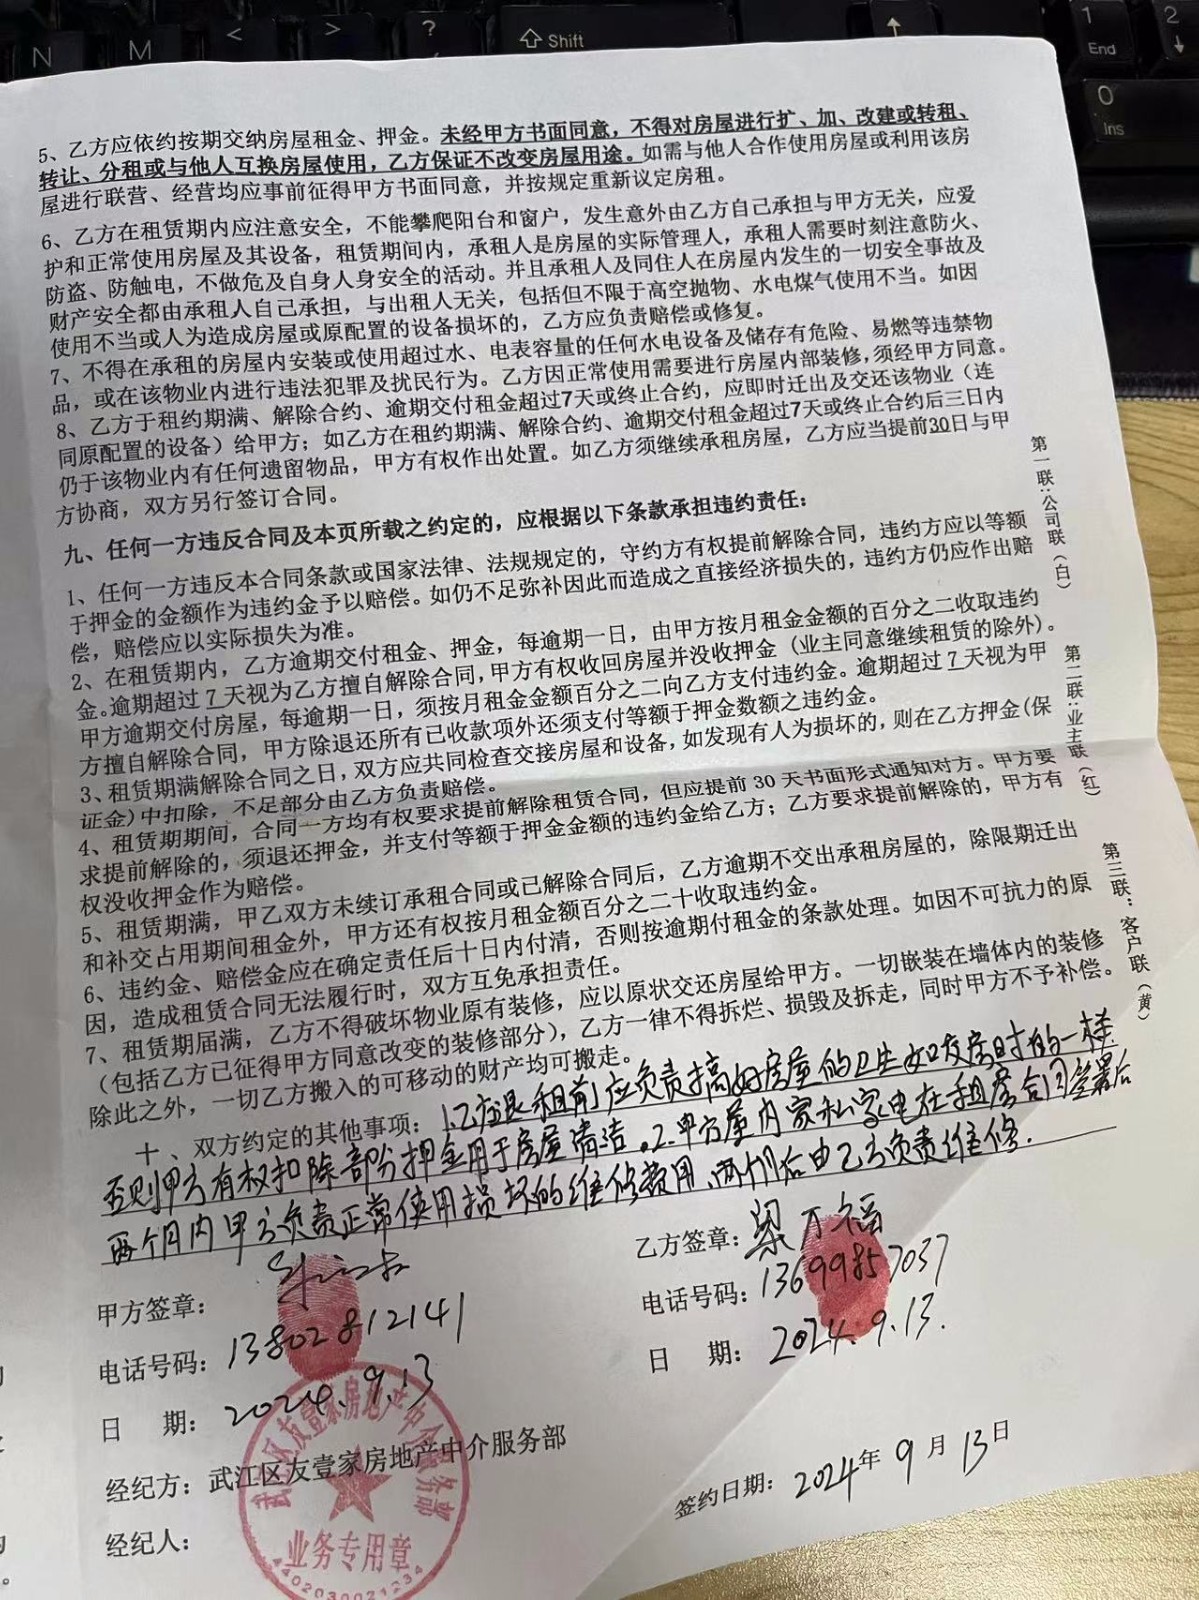 N
M
<
>
?
/
Shift
1
End
2
0
Ins
5、乙方应依约按期交纳房屋租金、押金。未经甲方书面同意，不得对房屋进行扩、加、改建或转租、
转让、分租或与他人互换房屋使用，乙方保证不改变房屋用途。如需与他人合作使用房屋或利用该房
屋进行联营、经营均应事前征得甲方书面同意，并按规定重新议定房租。
6、乙方在租赁期内应注意安全，不能攀爬阳台和窗户，发生意外由乙方自己承担与甲方无关，应爱
护和正常使用房屋及其设备，租赁期间内，承租人是房屋的实际管理人，承租人需要时刻注意防火、
防盗、防触电，不做危及自身人身安全的活动。并且承租人及同住人在房屋内发生的一切安全事故及
财产安全都由承租人自己承担，与出租人无关，包括但不限于高空抛物、水电煤气使用不当。如因
使用不当或人为造成房屋或原配置的设备损坏的，乙方应负责赔偿或修复。
7、不得在承租的房屋内安装或使用超过水、电表容量的任何水电设备及储存有危险、易燃等违禁物
品，或在该物业内进行违法犯罪及扰民行为。乙方因正常使用需要进行房屋内部装修，须经甲方同意。
8、乙方于租约期满、解除合约、逾期交付租金超过7天或终止合约，应即时迁出及交还该物业（连
同原配置的设备）给甲方；如乙方在租约期满、解除合约、逾期交付租金超过7天或终止合约后三日内
仍于该物业内有任何遗留物品，甲方有权作出处置。如乙方须继续承租房屋，乙方应当提前30日与甲
方协商，双方另行签订合同。
九、任何一方违反合同及本页所载之约定的，应根据以下条款承担违约责任：
1、任何一方违反本合同条款或国家法律、法规规定的，守约方有权提前解除合同，违约方应以等额
于押金的金额作为违约金予以赔偿。如仍不足弥补因此而造成之直接经济损失的，违约方仍应作出赔
偿，赔偿应以实际损失为准。
2、在租赁期内，乙方逾期交付租金、押金，每逾期一日，由甲方按月租金金额的百分之二收取违约
金。逾期超过 7 天视为乙方擅自解除合同，甲方有权收回房屋并没收押金（业主同意继续租赁的除外）。
甲方逾期交付房屋，每逾期一日，须按月租金金额百分之二向乙方支付违约金。逾期超过 7 天视为甲
方擅自解除合同，甲方除退还所有已收款项外还须支付等额于押金数额之违约金。
3、租赁期满解除合同之日，双方应共同检查交接房屋和设备，如发现有人为损坏的，则在乙方押金(保
证金)中扣除，不足部分由乙方负责赔偿。
4、租赁期期间，合同一方均有权要求提前解除租赁合同，但应提前 30 天书面形式通知对方。甲方要
求提前解除的，须退还押金，并支付等额于押金金额的违约金给乙方；乙方要求提前解除的，甲方有
权没收押金作为赔偿。
5、租赁期满，甲乙双方未续订承租合同或已解除合同后，乙方逾期不交出承租房屋的，除限期迁出
和补交占用期间租金外，甲方还有权按月租金额百分之二十收取违约金。
6、违约金、赔偿金应在确定责任后十日内付清，否则按逾期付租金的条款处理。如因不可抗力的原
因，造成租赁合同无法履行时，双方互免承担责任。
7、租赁期届满，乙方不得破坏物业原有装修，应以原状交还房屋给甲方。一切嵌装在墙体内的装修
（包括乙方已征得甲方同意改变的装修部分），乙方一律不得拆烂、损毁及拆走，同时甲方不予补偿。
除此之外，一切乙方搬入的可移动的财产均可搬走。
十、双方约定的其他事项：1.乙方退租前应负责搞好房屋的卫生如交房时的一样
否则甲方有权扣除部分押金用于房屋清洁。2.甲方屋内家私家电在租赁合同签署后
两个月内甲方负责正常使用损坏的维修费用、两个月后由乙方负责维修.
甲方签章：
电话号码：13802812141
日 期：2024.9.13
乙方签章：梁万福
电话号码：13699857037
日 期：2024.9.13.
经纪方：武江区友壹家房地产中介服务部
经纪人：
签约日期：2024年9月13日
武江区友壹家房地产中介服务部
业务专用章
4402030021234
第一联：公司联（白）
第二联：业主联（红）
第三联：客户联（黄）